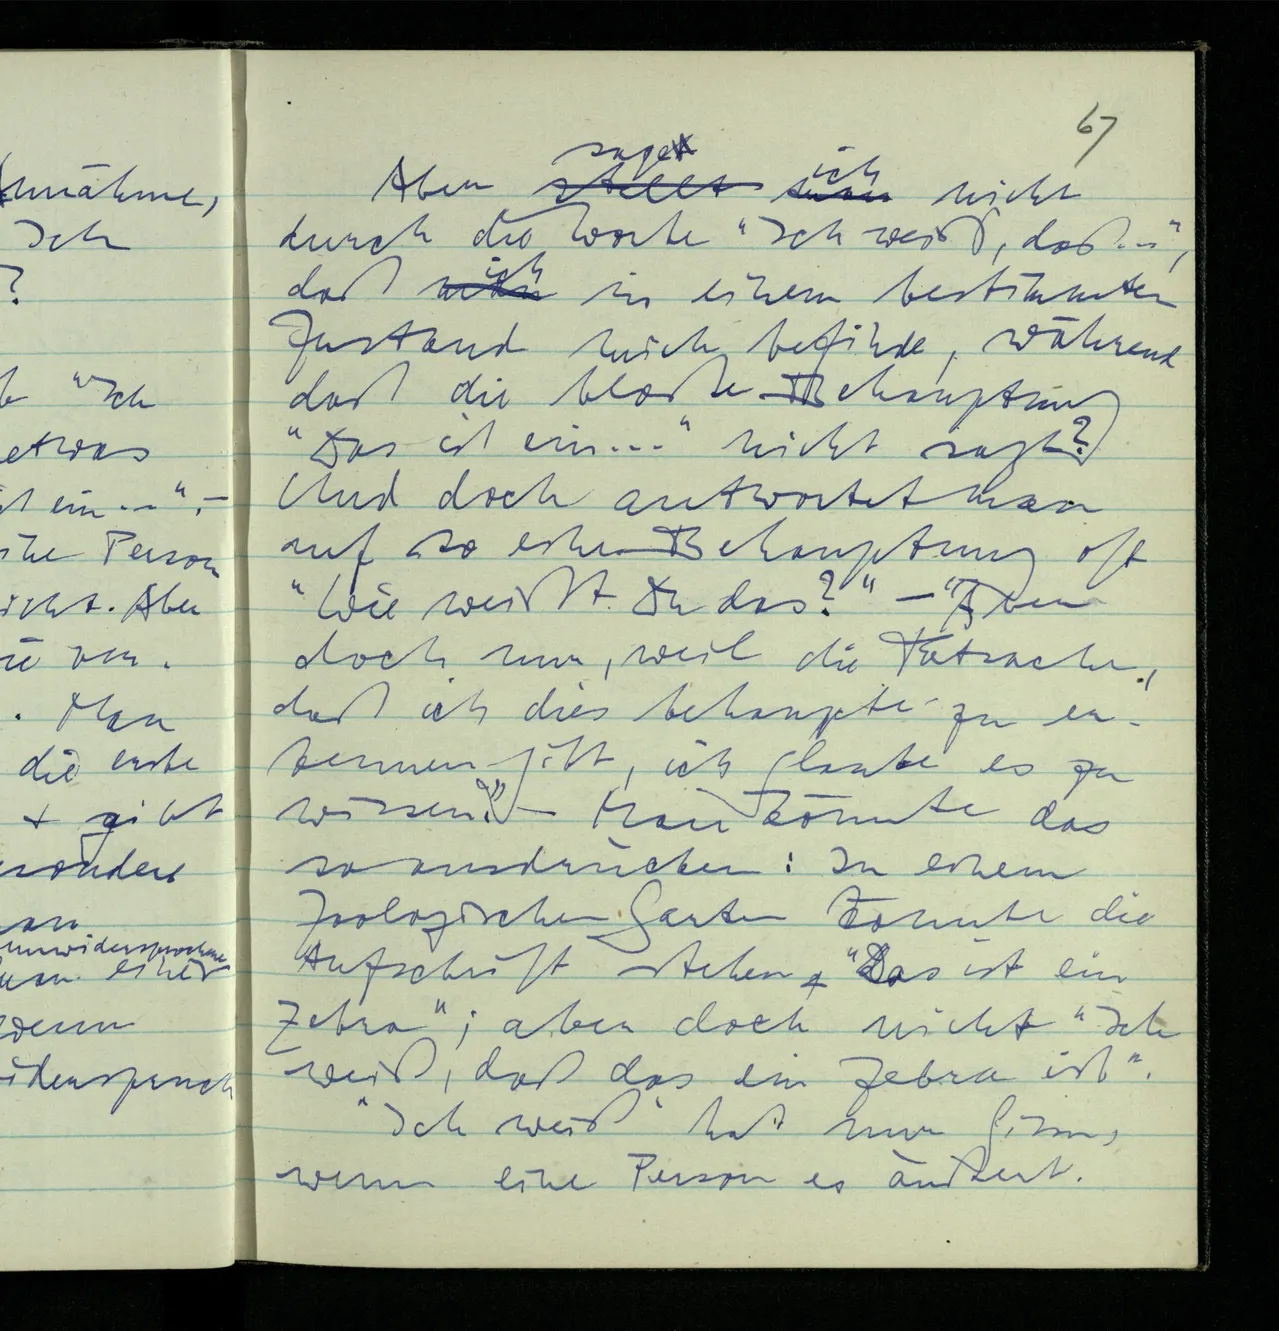 nnähme,
Ich
?
"Ich
etwas
ist ein..." , –
ine Person
icht. Aber
. Man
die erste
+ gibt
esondere
unwidersprochene
einer
wenn
iderspruch
67
sage ich
Aber stellt man nicht
durch die Worte "Ich weiß, daß...",
ich
daß man in einem bestimmten
Zustand mich befinde, während
daß die bloße Behauptung
"Das ist ein..." nicht sagt?
Und doch antwortet man
auf so eine Behauptung oft
"Wie weißt Du das?" – "Aber
doch nur, weil die Tatsache,
daß ich dies behaupte zu er-
kennen gibt, ich glaube es zu
wissen." – Man könnte das
so ausdrücken: In einem
Zoologischen Garten könnte die
Aufschrift stehen, "Das ist ein
Zebra"; aber doch nicht "Ich
weiß, daß das ein Zebra ist".
"Ich weiß" hat nur Sinn,
wenn eine Person es äußert.